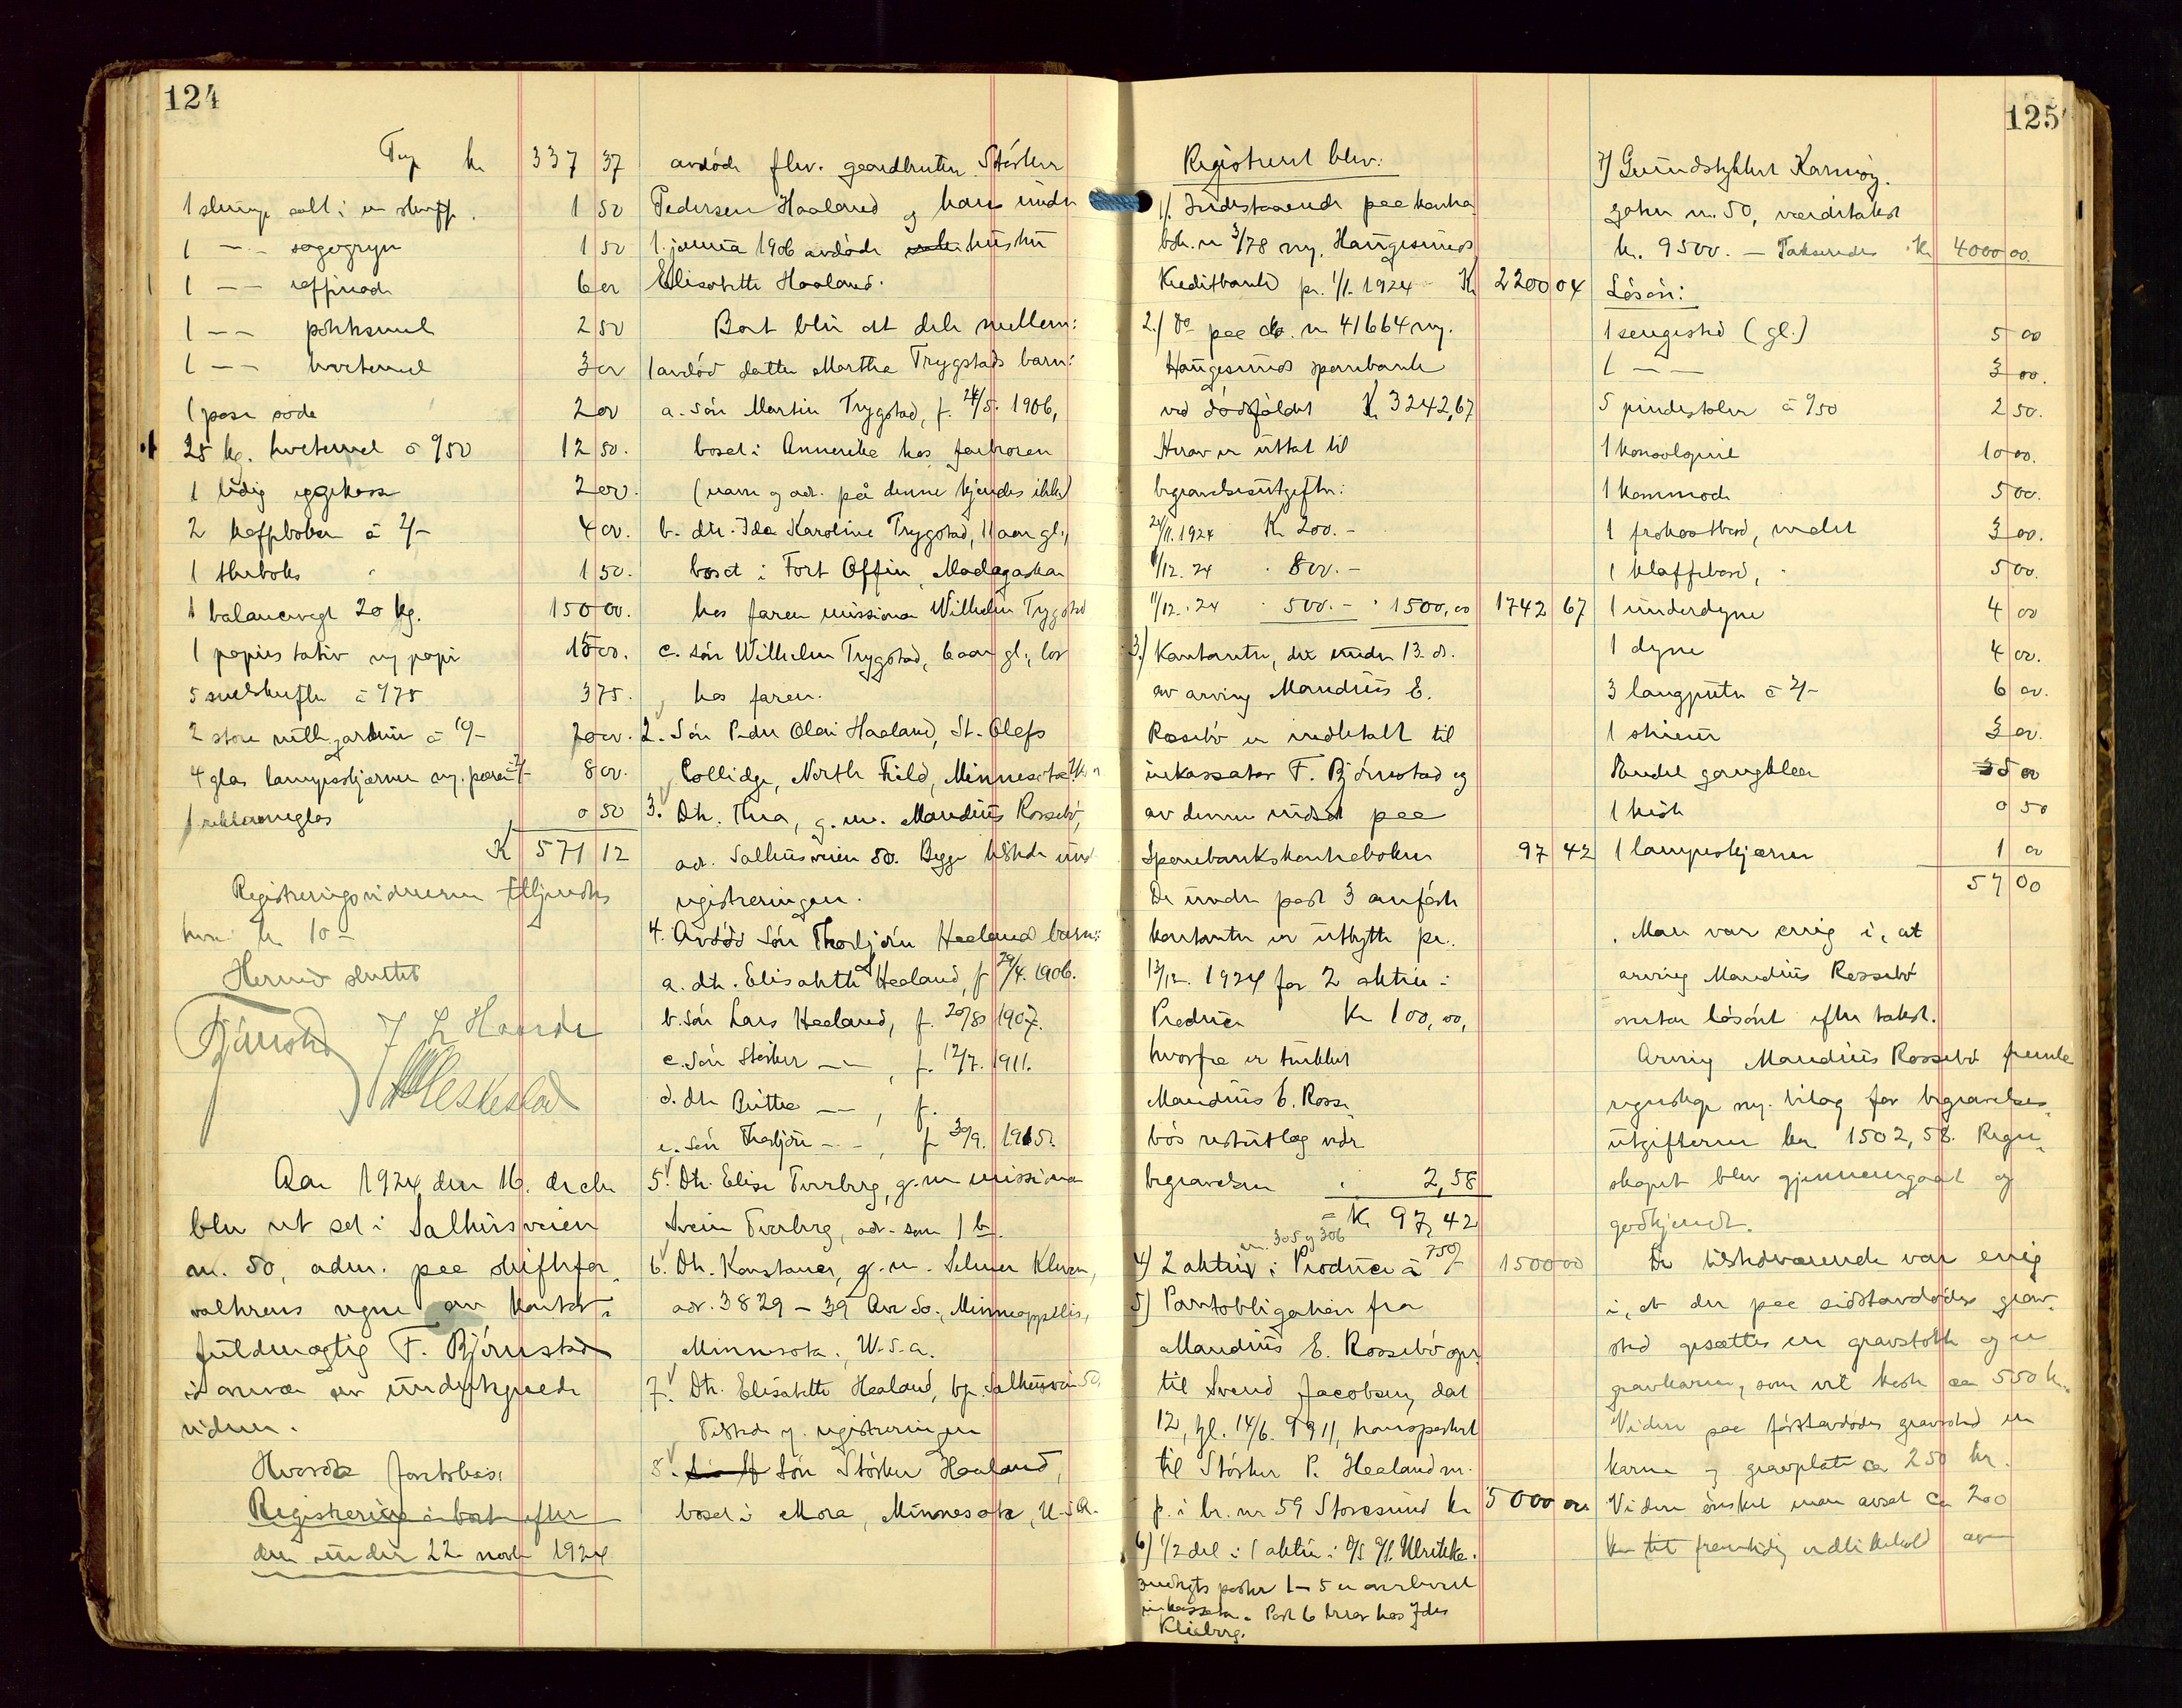 124
Trp kr 337 37
1 slump salt i en skuff. 1 50
1 — - sagogryn 1 50
1 — - raffinade 6 00
1 — - potetmel 2 50
1 — - hvetemel 3 00
1 pose soda 2 00
25 kg. hvetemel à 0/50 12 50.
1 ledig eggekasse 2 00.
2 kaffebokser à 2/- 4 00.
1 theboks 1 50.
1 balancevegt 20 kg. 150 00.
1 papirstativ m/ papir 15 00.
5 à 0/75 3 75.
2 store à 10/- 20 00.
4 glas lampeskjermer m/ pærer à 2/- 8 00.
1 reklameglas 0 50
K 571 12
Registreringsvidnerne tilkjendtes
hver kr 10 -
Hermed sluttet
Bjørnstad
Aar 1924 den 16. decbr
blev ret sat i Salhusveien
nr. 50, adm. paa skiftefor-
valterens vegne av kontor-
fuldmægtig F. Bjørnstad
i overvær av undertegnede
vidner.
Hvorda foretokes:
Registrering i boet efter
den under 22 novbr 1924
avdøde fhv. gaardbruker Størker
Pedersen Haaland og hans under
1. januar 1906 avdøde hustru
Elisabeth Haaland.
Boet blir at dele mellem:
1 avdød datter Marthe Trygstads barn:
a. søn Martin Trygstad, f. 24/5. 1906,
bosat i Amerika hos farbroren
(navn og adr. på denne kjendes ikke)
b. dtr. Ida Karoline Trygstad, 11 aar gl.,
bosat i Fort Offin, Madagaskar
hos faren missionær Wilhelm Trygstad
c. søn Wilhelm Trygstad, 6 aar gl., bor
hos faren.
2. Søn Peder Olai Haaland, St. Olefs
Collidge, North Field, Minnesota
3. Dtr. Thea, g. m. Mandrius Rossebø,
adr. Salhusveien 50. Begge tilstede und.
registreringen.
4. Avdød søn Thorbjørn Haaland barn:
a. dtr. Elisabeth Haaland, f 29/4. 1906.
b. søn Lars Haaland, f. 20/8 1907.
c. søn Størker — — , f. 12/7. 1911.
d. dtr Britha — — , f.
e. søn Thorbjørn — — , f 30/9. 1915.
5. Dtr. Elise Tverberg, g. m missionær
Svein Tverberg, adr. som 1 b.
6. Dtr. Konstance, g. m. Selmer Kleven,
adr. 3829 – 39 Ave So., Minneappollis,
Minnesota., U.S.a.
7. Dtr. Elisabeth Haaland, bp. Salhusvein 50,
Tilstede v. registreringen
8. Søn Størker Haaland,
bosat i Mora, Minnesota, U.S.A.
125
Registrert blev:
1). Indestaaende paa kontra
bok. nr 3/78 m/. Haugesunds
Kreditbank pr. 1/1. 1924 K 2200 04
2.) Do paa do. nr 41664 m/.
Haugesunds sparebank
ved dødsfaldet K 3242,67
Herav er uttat til
begravelsesutgifter:
24/11. 1924 K 200.-
1/12. 24 800.-
11/12. 24 500.- 1500,00 1742 67
3.) Kontanter, der under 13. ds.
av arving Mandrius E.
Rossebø er indbetalt til
inkassator F. Bjørnstad og
av denne indsat paa
Sparebankskontraboken 97 42
De under post 3 anførte
kontanter er utbytte pr.
13/12. 1924 for 2 aktier i
Produce Kr 100,00,
hvorfra er trukket
Mandrius E. Rosse
bøs restutlæg vedr
begravelsen 2,58
= K 97,42
nr. 305 og 306
4) 2 aktier i Produce à 750/- 1500 00
5) Pantobligation fra
Mandrius E. Rossebø opr
til Svend Jacobsen, dat
12, tgl. 14/6. 1911, transportert
til Størker P. Haaland m.
p. i br. nr 59 Storesund kr 5000 00
6) 1/2 del i 1 aktie i D/S A/S. Ulrikke.
poster 1 – 5 er overlevert
inkassator. Post 6 beror hos Jdes
Klieberg.
7) Grundstykket Karmøy.
gaten nr. 50, værditakst
kr. 9500. — Takseredes Kr 4000 00.
Løsøre:
1 sengested (gl.) 5 00
1 — — 3 00.
5 pindestoler à 0/50 2 50.
1 konsolspeil 10 00.
1 kommode 5 00.
1 frokostbord, malet 3 00.
1 klaffebord, 5 00.
1 underdyne 4 00
1 dyne 4 00.
3 langputer à 2/- 6 00.
1 skrin 3 00.
Endel gangklær 5 00
1 kiste 0 50
1 lampeskjerm 1 00
57 00
Man var enig i, at
arving Mandrius Rossebø
overtar løsøret efter takst.
Arving Mandrius Rossebø fremla
regnskap m/. bilag for begravelses-
utgifterne kr. 1502,58. Regn-
skapet blev gjennemgaat og
godkjendt.
De tilstedværende var enig
i, at der paa sidstavdødes grav-
sted opsættes en gravstøtte og en
gravkarm, som vil koste ca 550 kr.
Videre paa førstavdødes gravsted en
karm og gravplate ca 250 kr.
Videre ønsket man avsat ca 200
kr til fremtidig vedlikehold av